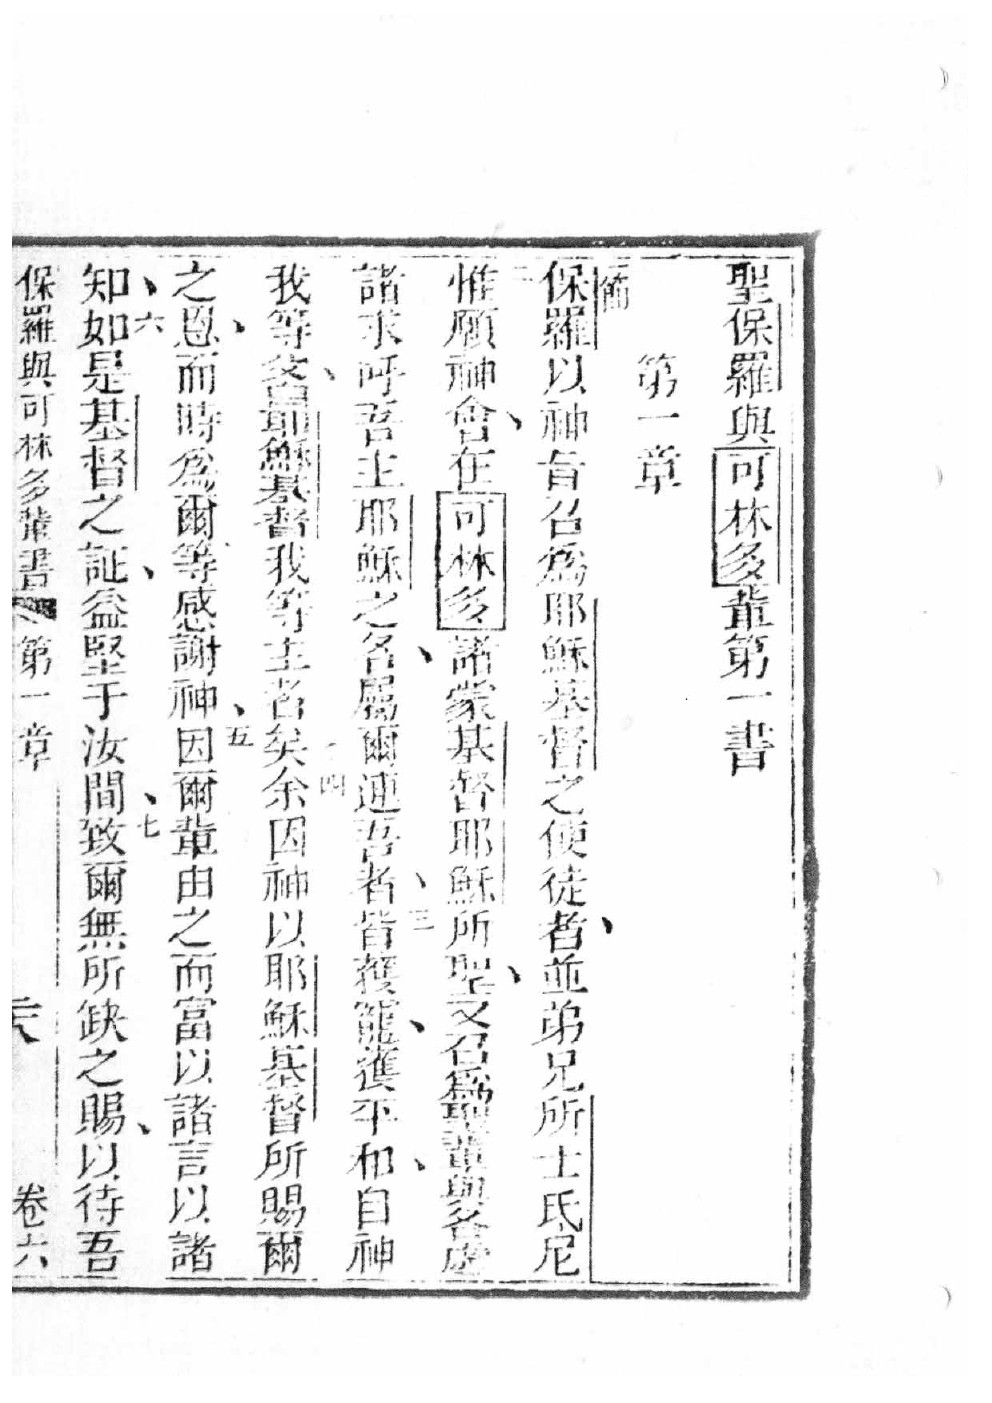 聖保羅與可林多輩第一書
第一章
一節
保羅以神旨召為耶穌基督之使徒者並弟兄所士氏尼
二
惟願神會在可林多諸蒙基督耶穌所聖又召為聖輩與各處
諸求呼吾主耶穌之名屬爾連吾者皆獲寵獲平和自神
三
我等父曁耶穌基督我等主者矣余因神以耶穌基督所賜爾
四
之恩而時為爾等感謝神因爾輩由之而富以諸言以諸
五
知如是基督之証益堅于汝間致爾無所缺之賜以待吾
六
七
保羅與可林多輩書 第一章 二八 卷六